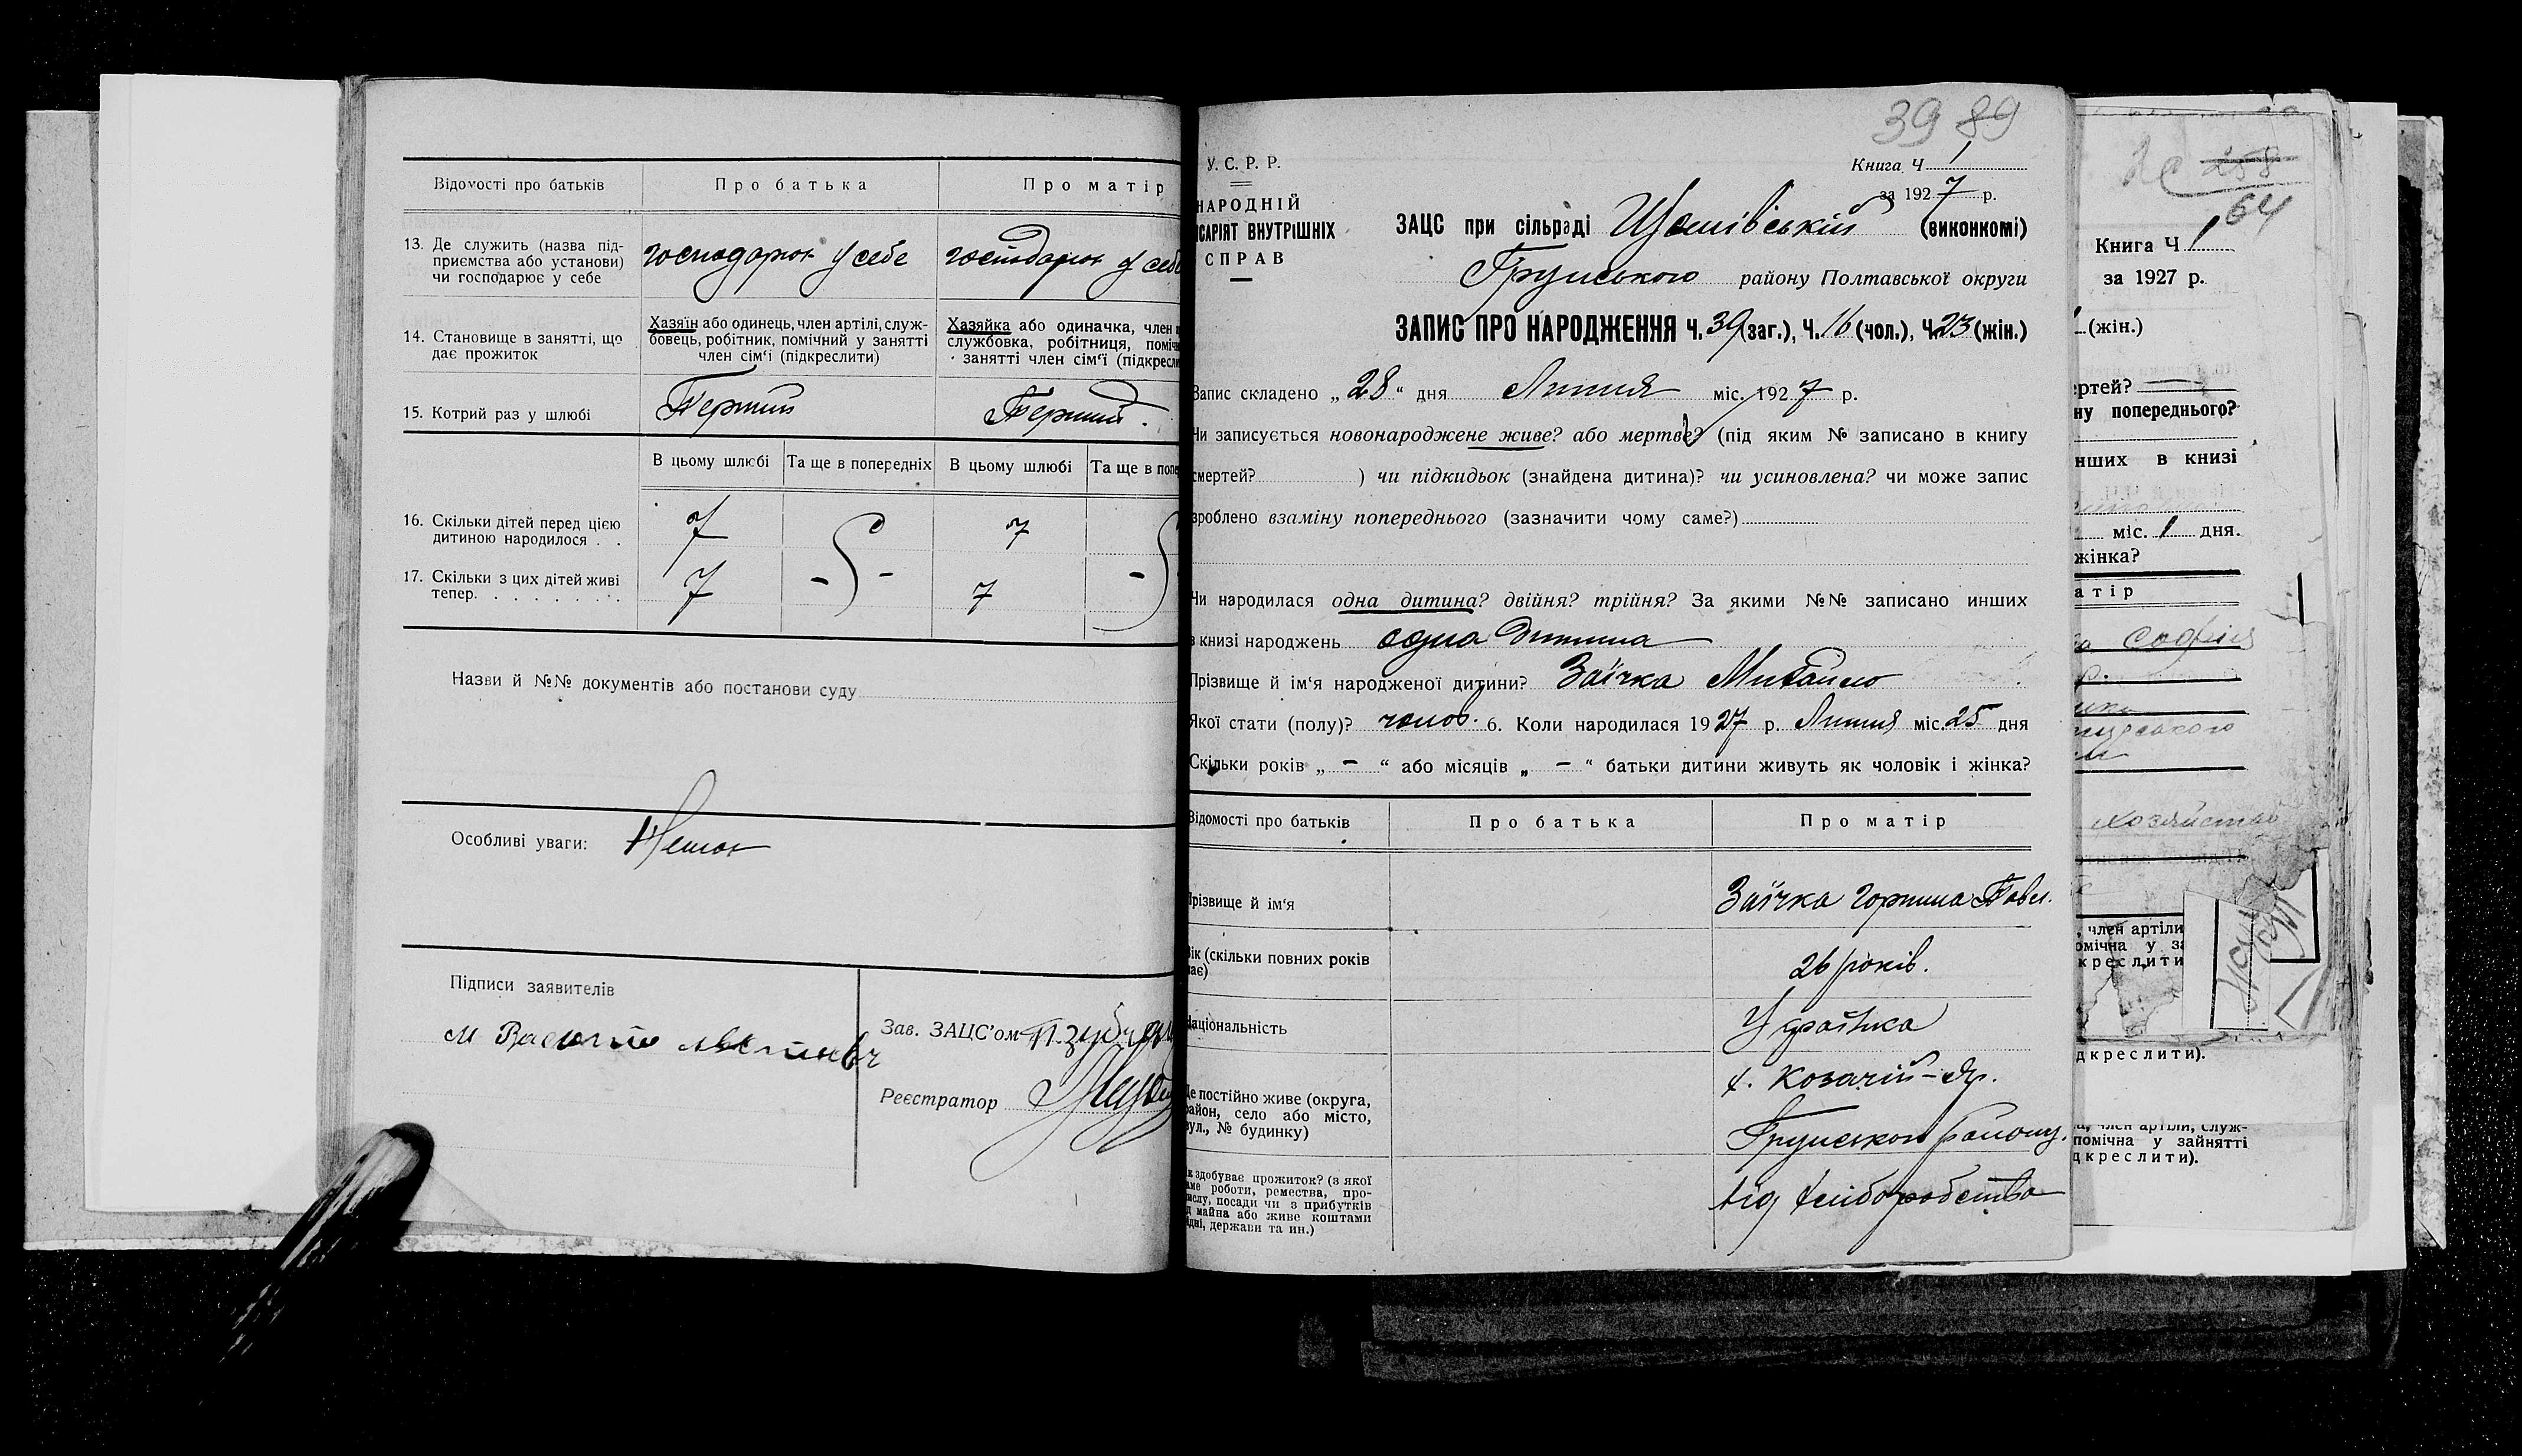 Відомості про батьків
Про батька
Про матір
13. Де служить (назва під-
приємства або установи)
чи господарює у себе
господарює у себе
господарює у себе
14. Становище в занятті, що
дає прожиток
Хазяїн або одинець, член артілі, служ-
бовець, робітник, помічний у занятті
член сім‘ї (підкреслити)
Хазяйка або одиначка, член
службовка, робітниця,
занятті член сім‘ї
15. Котрий раз у шлюбі
Перший
Перший.
В цьому шлюбі
Та ще в попередніх
В цьому шлюбі
Та ще в
16. Скільки дітей перед цією
дитиною народилося . .
7
7
17. Скільки з цих дітей живі
тепер. . . . . . . .
7
- -
7
-
Назви й №№ документів або постанови суду
Особливі уваги: Немає
Підписи заявителів
Зав. ЗАЦС’ом
Реєстратор
39 89
У. С. Р. Р.
НАРОДНІЙ
ВНУТРІШНІХ
СПРАВ
Книга Ч 1
за 1927 р.
ЗАЦС при сільраді (виконкомі)
Грунського району Полтавської округи
ЗАПИС ПРО НАРОДЖЕННЯ Ч. 39 (заг.), Ч. 16 (чол.), Ч. 23 (жін.)
Запис складено „ 28 “ дня Липня міс. 1927 р.
Чи записується новонароджене живе? або мертве? (під яким № записано в книгу
смертей? ) чи підкидьок (знайдена дитина)? чи усиновлена? чи може запис
зроблено взаміну попереднього (зазначити чому саме?)
Чи народилася одна дитина? двійня? трійня? За якими №№ записано инших
в книзі народжень одна дитина
Прізвище й ім‘я народженої дитини? Заїчка Михайло
Якої стати (полу)? чолов. 6. Коли народилася 1927 р. Липня міс. 25 дня
Скільки років „ - “ або місяців „ - “ батьки дитини живуть як чоловік і жінка?
Відомості про батьків
Про батька
Про матір
Прізвище й ім‘я
Заїчка Горпина Павл.
Вік (скільки повних років
має)
26 років.
Національність
Українка
Де постійно живе (округа,
район, село або місто,
вул., № будинку)
х. Козачий-Яр.
Грунського району.
Як здобуває прожиток? (з якої
саме роботи, ремества, про-
мислу, посади чи з прибутків
від майна або живе коштами
рідні, держави та ин.)
від хліборобства
258
64
Книга Ч 1
за 1927 р.
(жін.)
ну попереднього?
нших в книзі
міс. 1 дня.
жінка?
Софія
, член артілі
креслити
дкреслити).
член артіли, служ-
помічна у зайнятті
дкреслити).